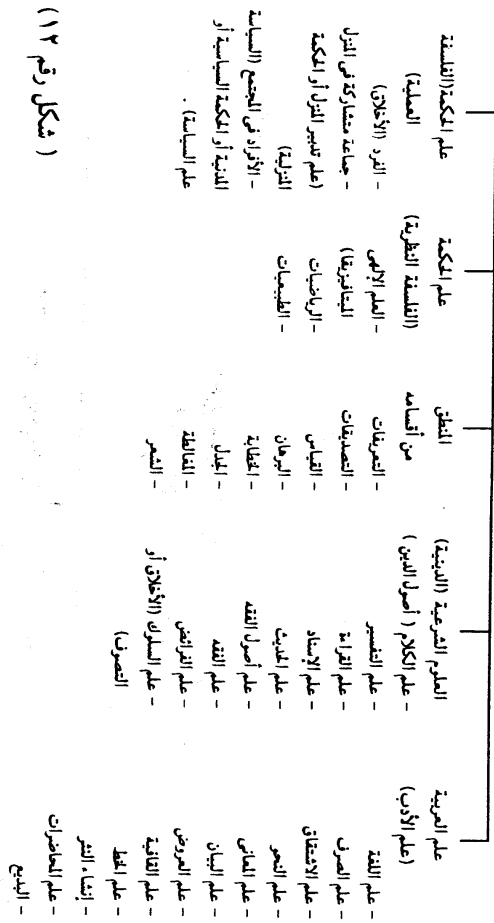 علم العربية
(علم الأدب)
علم اللغة
- علم الصرف
- علم الاشتقاق
- علم النحو
- علم المعانى
- علم البيان
- علم العروض
- علم القافية
- علم الخط
- إنشاء النثر
- علم المحاضرات
- البديع
العلوم الشرعية (الدينية)
- علم الكلام ( أصول الدين )
- علم التفسير
- علم القراءة
- علم الإسناد
- علم الحديث
- علم أصول الفقه
- علم الفقه
- علم الفرائض
- علم السلوك (الأخلاق أو
التصوف)
المنطق
من أقسامه
- التعريفات
- التصديقات
- القياس
- البرهان
- الخطابة
- الجدل
- المغالطة
- الشعر
علم الحكمة
(الفلسفة النظرية)
- العلم الإلهى
(الميتافيزيقا
- الرياضيات
- الطبيعيات
علم الحكمة (الفلسفة
العملية)
- الفرد (الأخلاق)
- جماعة متشاركة فى المنزل
(علم تدبير المنزل أو الحكمة
المنزلية)
- الأفراد فى المجتمع (السياسة
المدنية أو الحكمة السياسية أو
علم السياسة) .
( شكل رقم ١٢ )